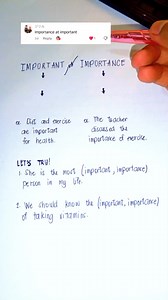 importance at important
Reply
IMPORTANT vs IMPORTANCE
Diet and exercise
are important
for health.
The teacher
discussed the
importance of exercise.
LET'S TRY!
1. She is the most (important, importance)
person in my life.
2. We should know the (important, importance)
of taking vitamins.